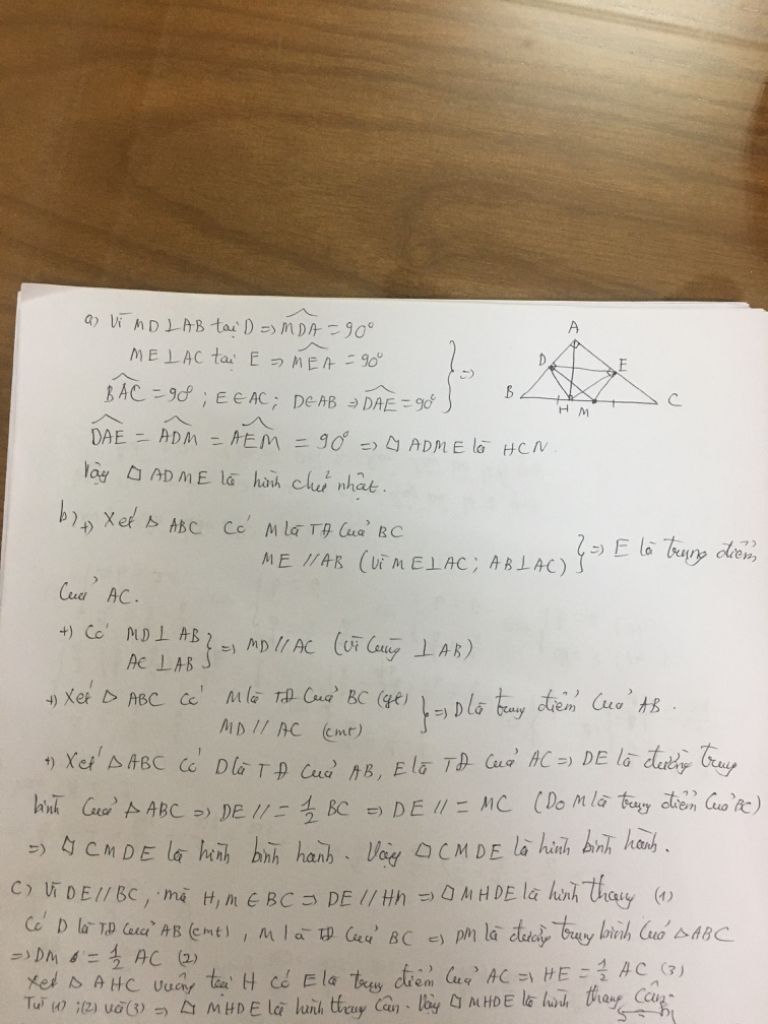 a) Vì MD ⊥ AB tại D => \widehat{MDA} = 90°
ME ⊥ AC tại E => \widehat{MEA} = 90°
\widehat{BAC} = 90° ; E ∈ AC ; D ∈ AB => \widehat{DAE} = 90° } =>
A
D
E
B
H
M
C
\widehat{DAE} = \widehat{ADM} = \widehat{AEM} = 90° => ▱ ADME là HCN.
Vậy ▱ ADME là hình chữ nhật.
b) +) Xét Δ ABC Có M là TĐ Của BC
ME // AB (Vì ME ⊥ AC ; AB ⊥ AC) } => E là trung điểm
Của AC.
+) Có MD ⊥ AB
AC ⊥ AB } => MD // AC (Vì Cùng ⊥ AB)
+) Xét Δ ABC Có M là TĐ Của BC (gt)
MD // AC (cmt) } => D là trung điểm Của AB.
+) Xét Δ ABC Có D là TĐ Của AB, E là TĐ Của AC => DE là đường trung
bình Của Δ ABC => DE // = 1/2 BC => DE // = MC (Do M là trung điểm Của BC)
=> ▱ CMDE là hình bình hành. Vậy ▱ CMDE là hình bình hành.
C) Vì DE // BC, mà H, M ∈ BC => DE // HM => ▱ MHDE là hình thang (1)
Có D là TĐ Của AB (cmt), M là TĐ Của BC => DM là đường trung bình Của Δ ABC
=> DM = 1/2 AC (2)
Xét Δ AHC vuông tại H Có E là trung điểm Của AC => HE = 1/2 AC (3)
Từ (1) ; (2) và (3) => ▱ MHDE là hình thang Cân. Vậy ▱ MHDE là hình thang Cân.